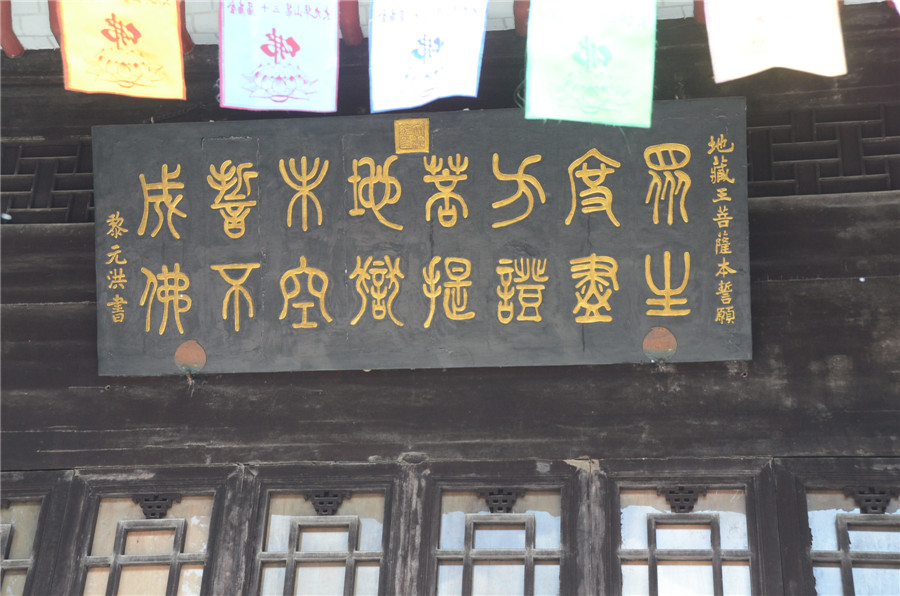 地藏王菩薩本誓願
眾生
度盡
方證
菩提
地獄
未空
誓不
成佛
黎元洪書
佛
佛
佛
佛